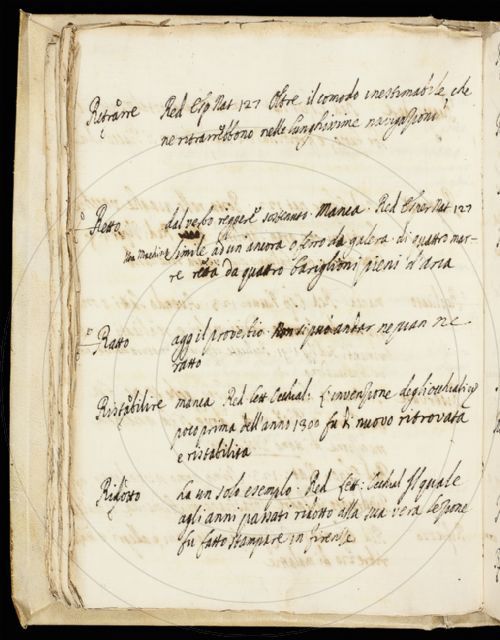 Ritrarre Red Esp Nat 127 Oltre il comodo inestimabile, che
ne ritrarrebbono nelle lunghissime navigazioni
Retto dal verbo reggere sostanti. Manca. Red Esper Nat 127
Una Machina simile ad un ancora o ferro da galera di quattro mar-
re retta da quattro bariglioni pieni d'aria
Ratto agg il proverbio. Non si può andar ne pian ne
ratto
Ristabilire manca Red Lett Occhial: L'invenzione degli occhiali
poco prima dell'anno 1300 fu di nuovo ritrovata
e ristabilita
Ridotto ha un solo esemplo. Red Lett: Occhial Il quale
agli anni passati ridotto alla sua vera lezione
fu fatto stampare in firenze